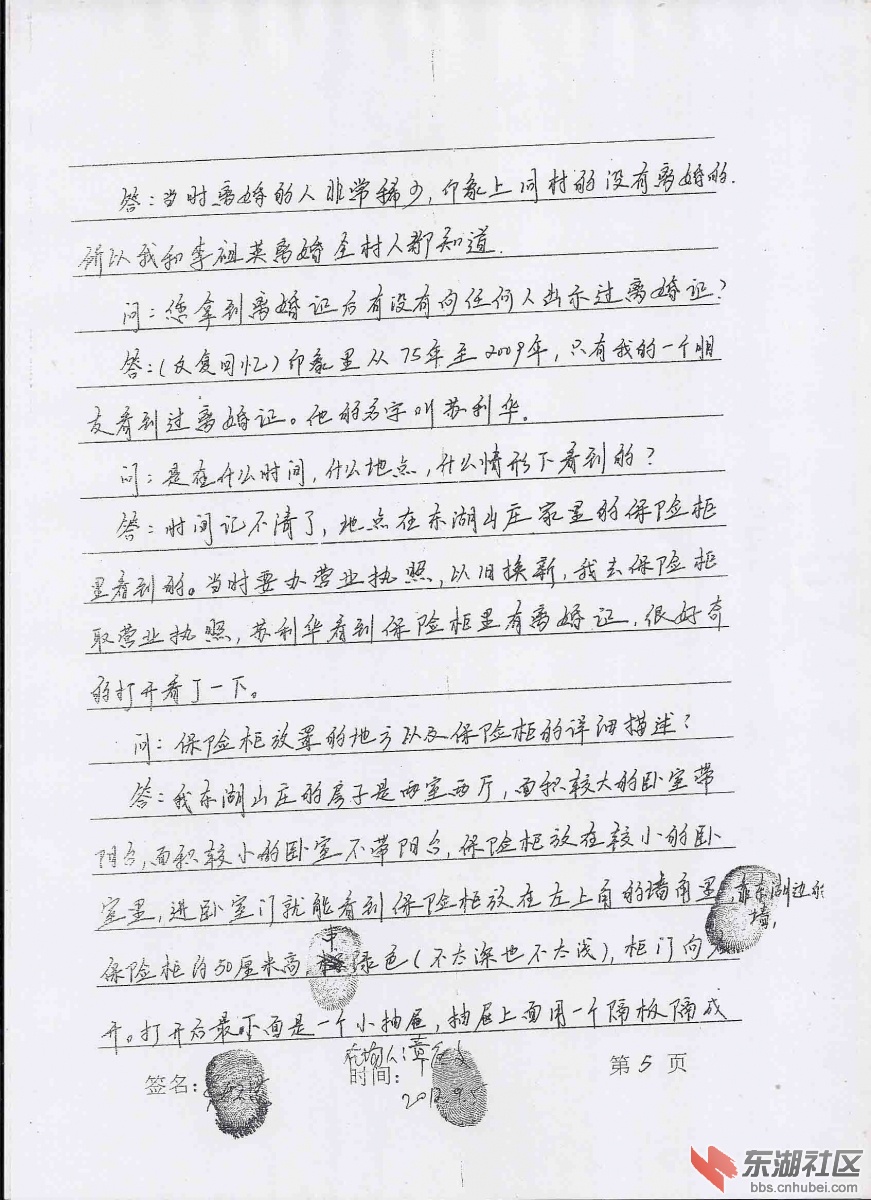 答：当时离婚的人非常稀少，印象上同村的没有离婚的．
所以我和李祖英离婚全村人都知道．
问：您拿到离婚证后有没有向任何人出示过离婚证？
答：（反复回忆）印象里从75年至2009年，只有我的一个朋
友看到过离婚证。他的名字叫苏利华．
问：是在什么时间，什么地点，什么情形下看到的？
答：时间记不清了，地点在东湖山庄家里的保险柜
里看到的。当时要办营业执照，以旧换新，我去保险柜
取营业执照，苏利华看到保险柜里有离婚证，很好奇
的打开看了一下。
问：保险柜放置的地方以及保险柜的详细描述？
答：我东湖山庄的房子是两室两厅，面积较大的卧室带
阳台，面积较小的卧室不带阳台，保险柜放在较小的卧
室里，进卧室门就能看到保险柜放在左上角的墙角里，靠东湖边的
墙，
保险柜约50厘米高，中绿色（不太深也不太浅），柜门向
开。打开后最下面是一个小抽屉，抽屉上面用一个隔板隔成
签名：
时间：
2012.9.5
第5页
东湖社区
bbs.cnhubei.com